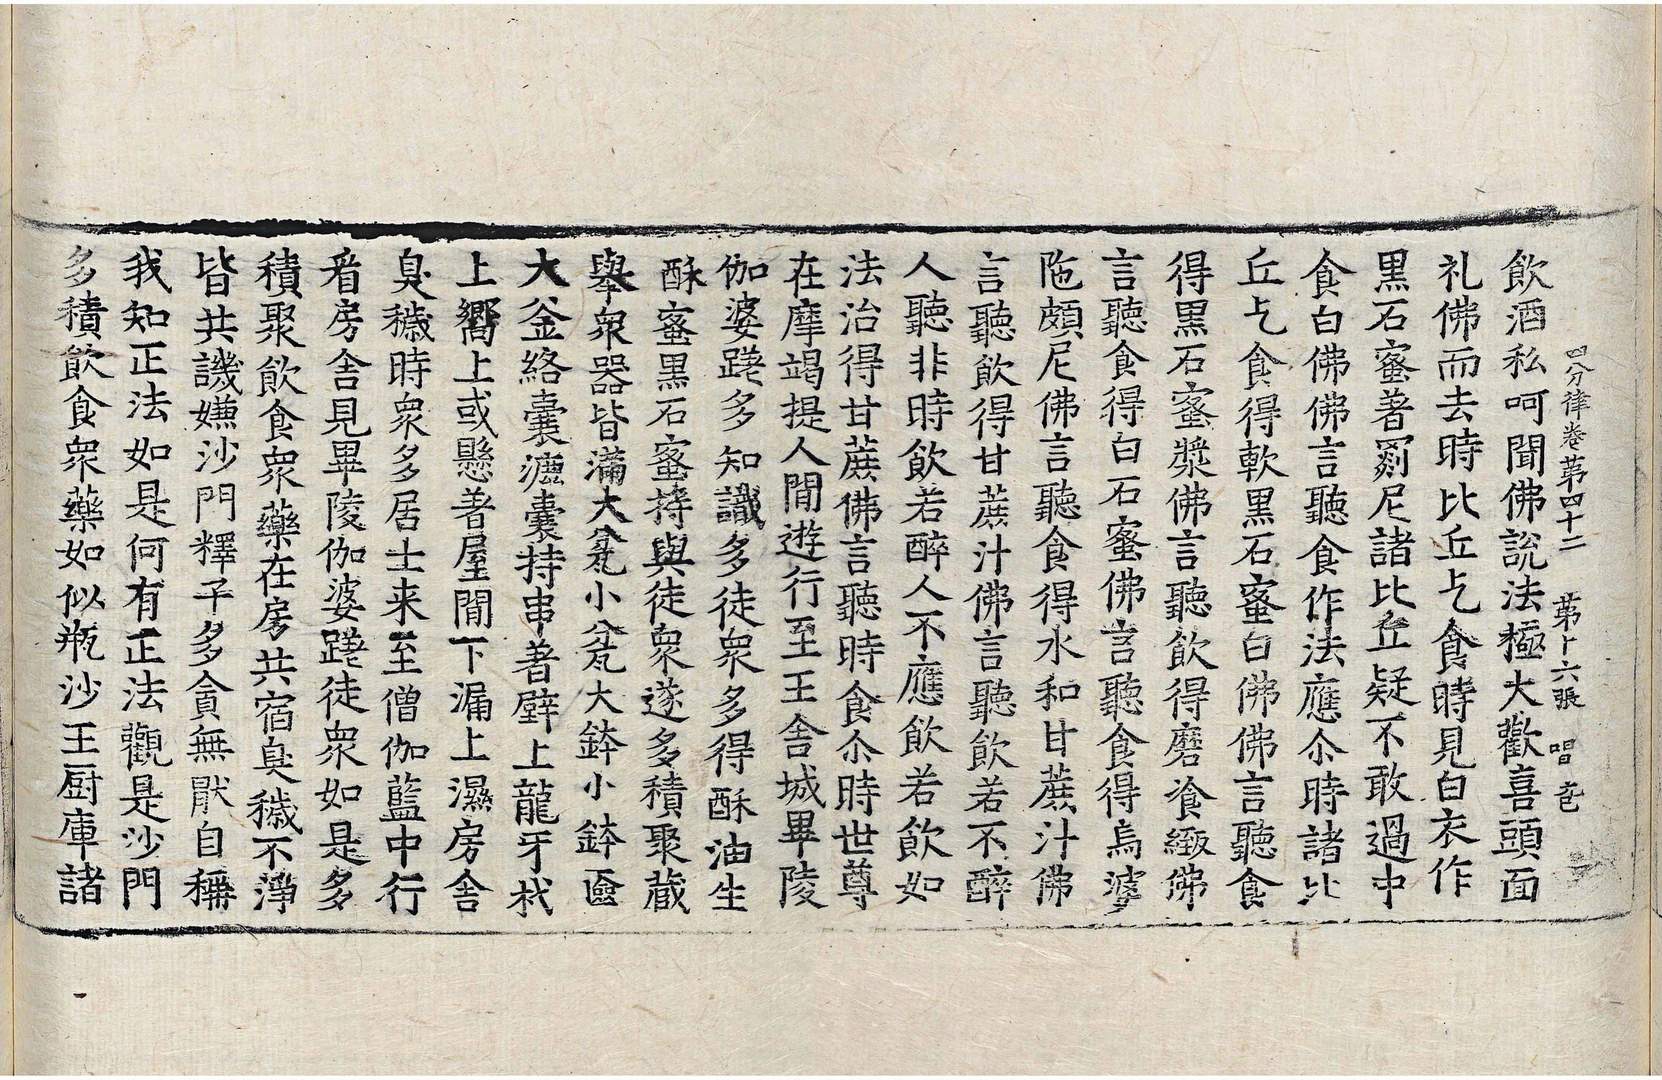 四分律卷苐四十二 苐十六張 唱
飲酒私呵聞佛說法極大歡喜頭面
礼佛而去時比丘乞食時見白衣作
黑石蜜著𦋺尼諸比丘疑不敢過中
食白佛佛言聽食作法應尒時諸比
丘乞食得軟黑石蜜白佛佛言聽食
得黑石蜜漿佛言聽飲得磨飡緻佛
言聽食得白石蜜佛言聽食得烏婆
陁頗尼佛言聽食得水和甘蔗汁佛
言聽飲得甘蔗汁佛言聽飲若不醉
人聽非時飲若醉人不應飲若飲如
法治得甘蔗佛言聽時食尒時世尊
在摩竭提人間遊行至王舍城畢陵
伽婆蹉多知識多徒衆多得酥油生
酥蜜黑石蜜持與徒衆遂多積聚藏
舉衆器皆滿大瓫小瓫大鉢小鉢匳
大釜絡囊漉囊持串著壁上龍牙杙
上嚮上或懸著屋間下漏上濕房舍
臭穢時衆多居士来至僧伽藍中行
看房舍見畢陵伽婆蹉徒衆如是多
積聚飲食衆藥在房共宿臭穢不淨
皆共譏嫌沙門釋子多貪無猒自稱
我知正法如是何有正法觀是沙門
多積飲食衆藥如似瓶沙王厨庫諸